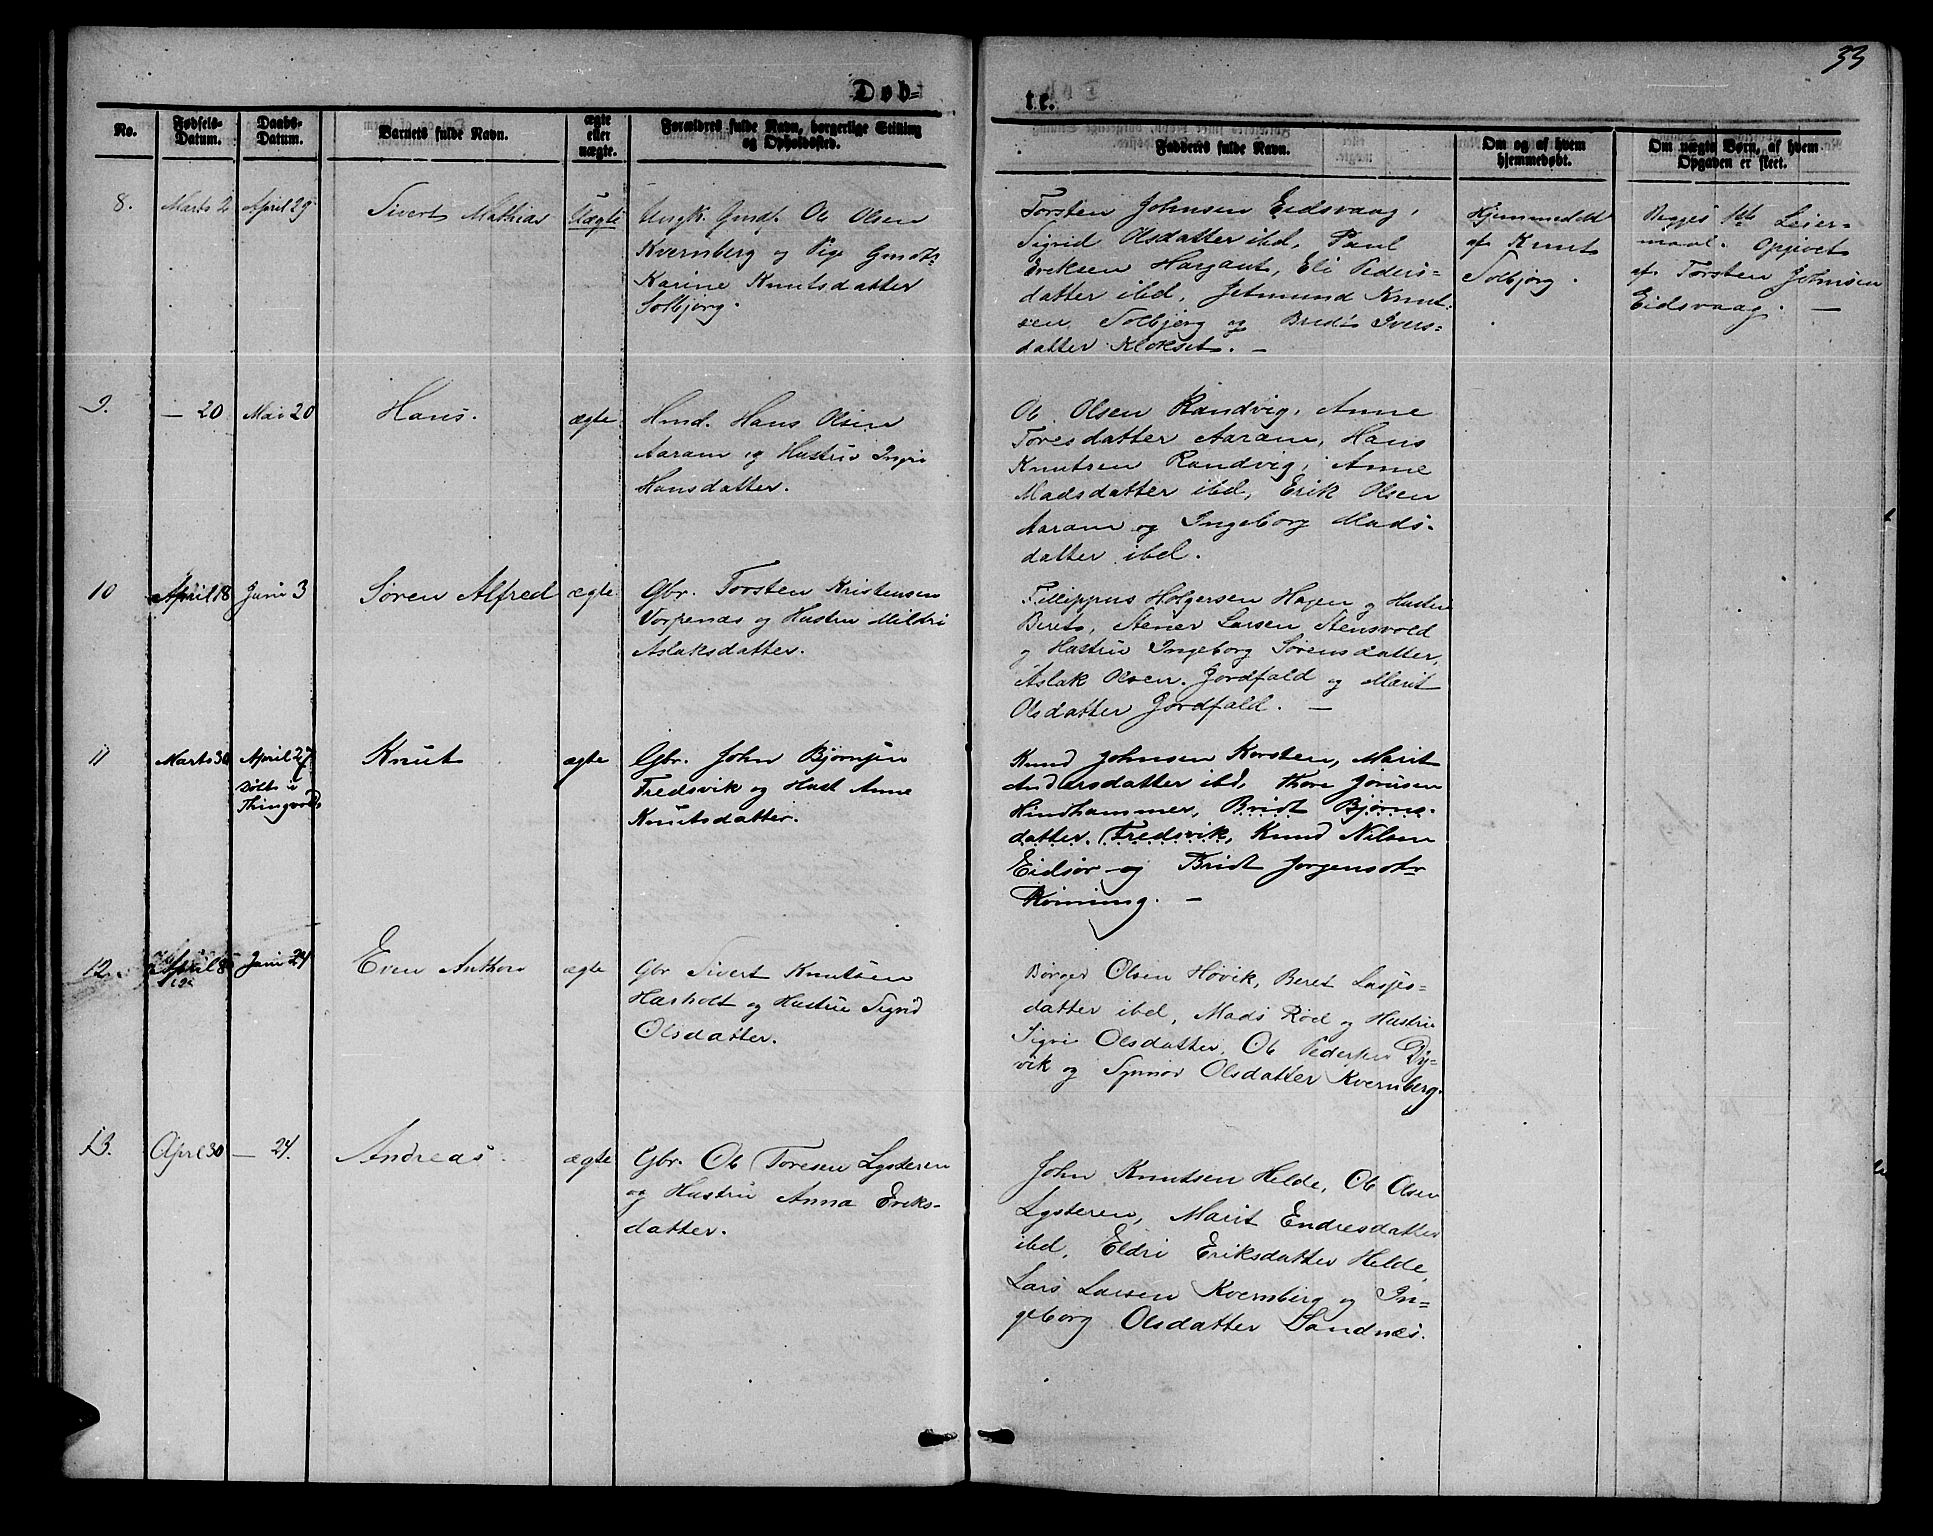 33
Døb=
te.
No.
Fødsels-
Datum.
Daabs-
Datum.
Barnets fulde Navn.
ægte
eller
uægte.
Forældres fulde Navn, borgerlige Stilling
og Opholdssted.
Fadderes fulde Navn.
Om og af hvem
hjemmedøbt.
Om uægte Børn, af hvem
Opgaven er skeet.
8. Marts 2 April 29 Sivert Mathias Uægte
Ungk. Gmdf. Ole Olsen
Kvernberg og Pige Gmdtr
Karine Knutsdatter
Solbjørg.
Torsten Johnsen Eidsvaag,
Sigrid Olsdatter ibd, Paul
Eriksen Hargaut, Eli Peders-
datter ibd, Jetmund Knut-
sen Solbjørg og Bredt Ivers-
datter Klokset. —
Hjemmedøbt
af Knut
Solbjørg.
Begges 1ste Leier-
maal. Opgivet
af Torsten Johnsen
Eidsvaag. —
9. — 20 Mai 20 Hans. ægte
Hmd. Hans Olsen
Aaram og Hustru Ingri
Hansdatter.
Ole Olsen Randvig, Anne
Toresdatter Aaram, Hans
Knutsen Randvig, Anne
Madsdatter ibd, Erik Olsen
Aaram og Ingeborg Mads-
datter ibd.
10 April 18 Juni 3 Søren Alfred ægte
Gbr. Torsten Kristensen
Vorpenæs og Hustru Mildri
Aslaksdatter.
Fillippus Holgersen Hagen og Hustru
Berets, Stener Larsen Stensvold
og Hustru Ingeborg Sørensdatter,
Aslak Olsen Jordfald og Marit
Olsdatter Jordfald. —
11 Marts 30 April 27
Døbt i
Thingvold
Knut ægte
Gbr. John Bjørnsen
Fredsvik og Hust Anne
Knutsdatter.
Knud Johnsen Korsten, Marit
Andersdatter ibd, Thore Jonsen
Hindhammer, Bridt Bjørns-
datter Fredsvik, Knud Nilsen
Eidsør og Bridt Jørgensdtr
Kønning. —
12. April 8 Juni 24 Even Anthon ægte
Gbr Sivert Knutsen
Harholt og Hustru Sigrid
Olsdatter.
Børger Olsen Høvik, Beret Lasses-
datter ibd, Mads Rød og Hustru
Sigri Olsdatter, Ole Pedersen Dy-
vik og Synnøv Olsdatter Kvernberg.
13. April 30 — 24. Andreas. ægte
Gbr. Ole Toresen Lysteren
og Hustru Anna Eriks-
datter.
John Knutsen Helde, Ole Olsen
Lysteren, Marit Endresdatter
ibd, Eldri Eriksdatter Helde,
Lars Larsen Kvernberg og In-
geborg Olsdatter Sandnæs.